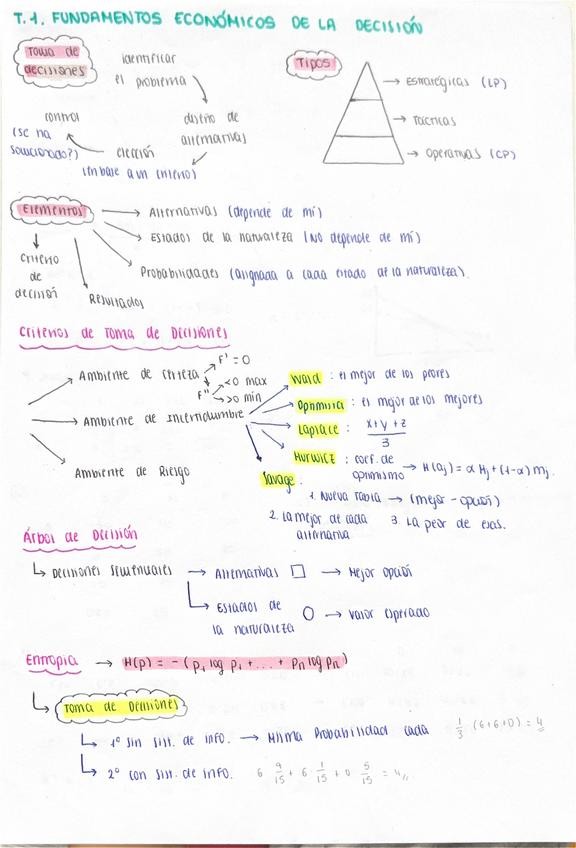 T.1. FUNDAMENTOS ECONÓMICOS DE LA DECISIÓN
Toma de decisiones
identificar el problema
diseño de alternativas
elección
(en base a un criterio)
control
(se ha solucionado?)
Tipos
Estratégicas (LP)
Tácticas
Operativas (CP)
Elementos
Alternativas (depende de mí)
Estados de la naturaleza (No depende de mí)
Probabilidades (asignada a cada estado de la naturaleza).
Resultados
Criterio de decisión
Criterios de Toma de Decisiones
Ambiente de certeza
F' = 0
F''
<0 max
>0 min
Ambiente de Incertidumbre
Wald : el mejor de los peores
Optimista : el mejor de los mejores
Laplace : x+y+z / 3
Hurwicz : coef. de optimismo → H(aj) = α Hj + (1-α) mj.
Savage.
1. Nueva Tabla → (mejor - opción)
2. La mejor de cada alternativa
3. La peor de esas.
Ambiente de Riesgo
Árbol de Decisión
Decisiones secuenciales → Alternativas □ → Mejor opción
Estados de la naturaleza ○ → Valor esperado
Entropía → H(p) = - (p1 log p1 + ... + pn log pn)
Toma de Decisiones
1º sin sist. de info. → Misma Probabilidad cada 1/3 (6+6+0) = 4
2º con sist. de info. 6 9/15 + 6 1/15 + 0 5/15 = 4,,